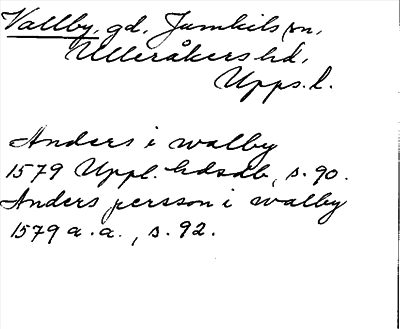 Vallby, gd, Jumkils sn,
Ulleråkers hd,
Upps. l.
Anders i walby
1579 Uppl. hdsdb, s. 90.
Anders persson i walby
1579 a. a., s. 92.